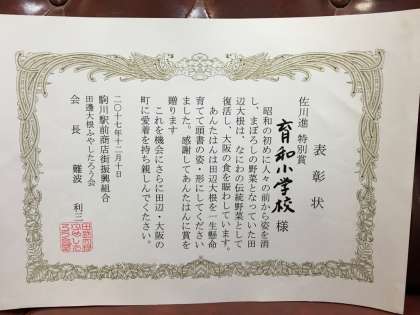 表彰状
佐川進 特別賞
育和小学校 様
昭和の初めに人々の前から姿を消
し、まぼろしの野菜となっていた田
辺大根は、なにわの伝統野菜として
復活し、大阪の食を賑わしています。
あんたはんは田辺大根を一生懸命
育てて頭書の姿・形にしてください
ました。感謝してあんたはんに賞を
贈ります
これを機会にさらに田辺・大阪の
町に愛着を持ち親しんでください。
二〇十七年十二月十日
駒川駅前商店街振興組合
田邊大根ふやしたろう会
会長 難波 利三